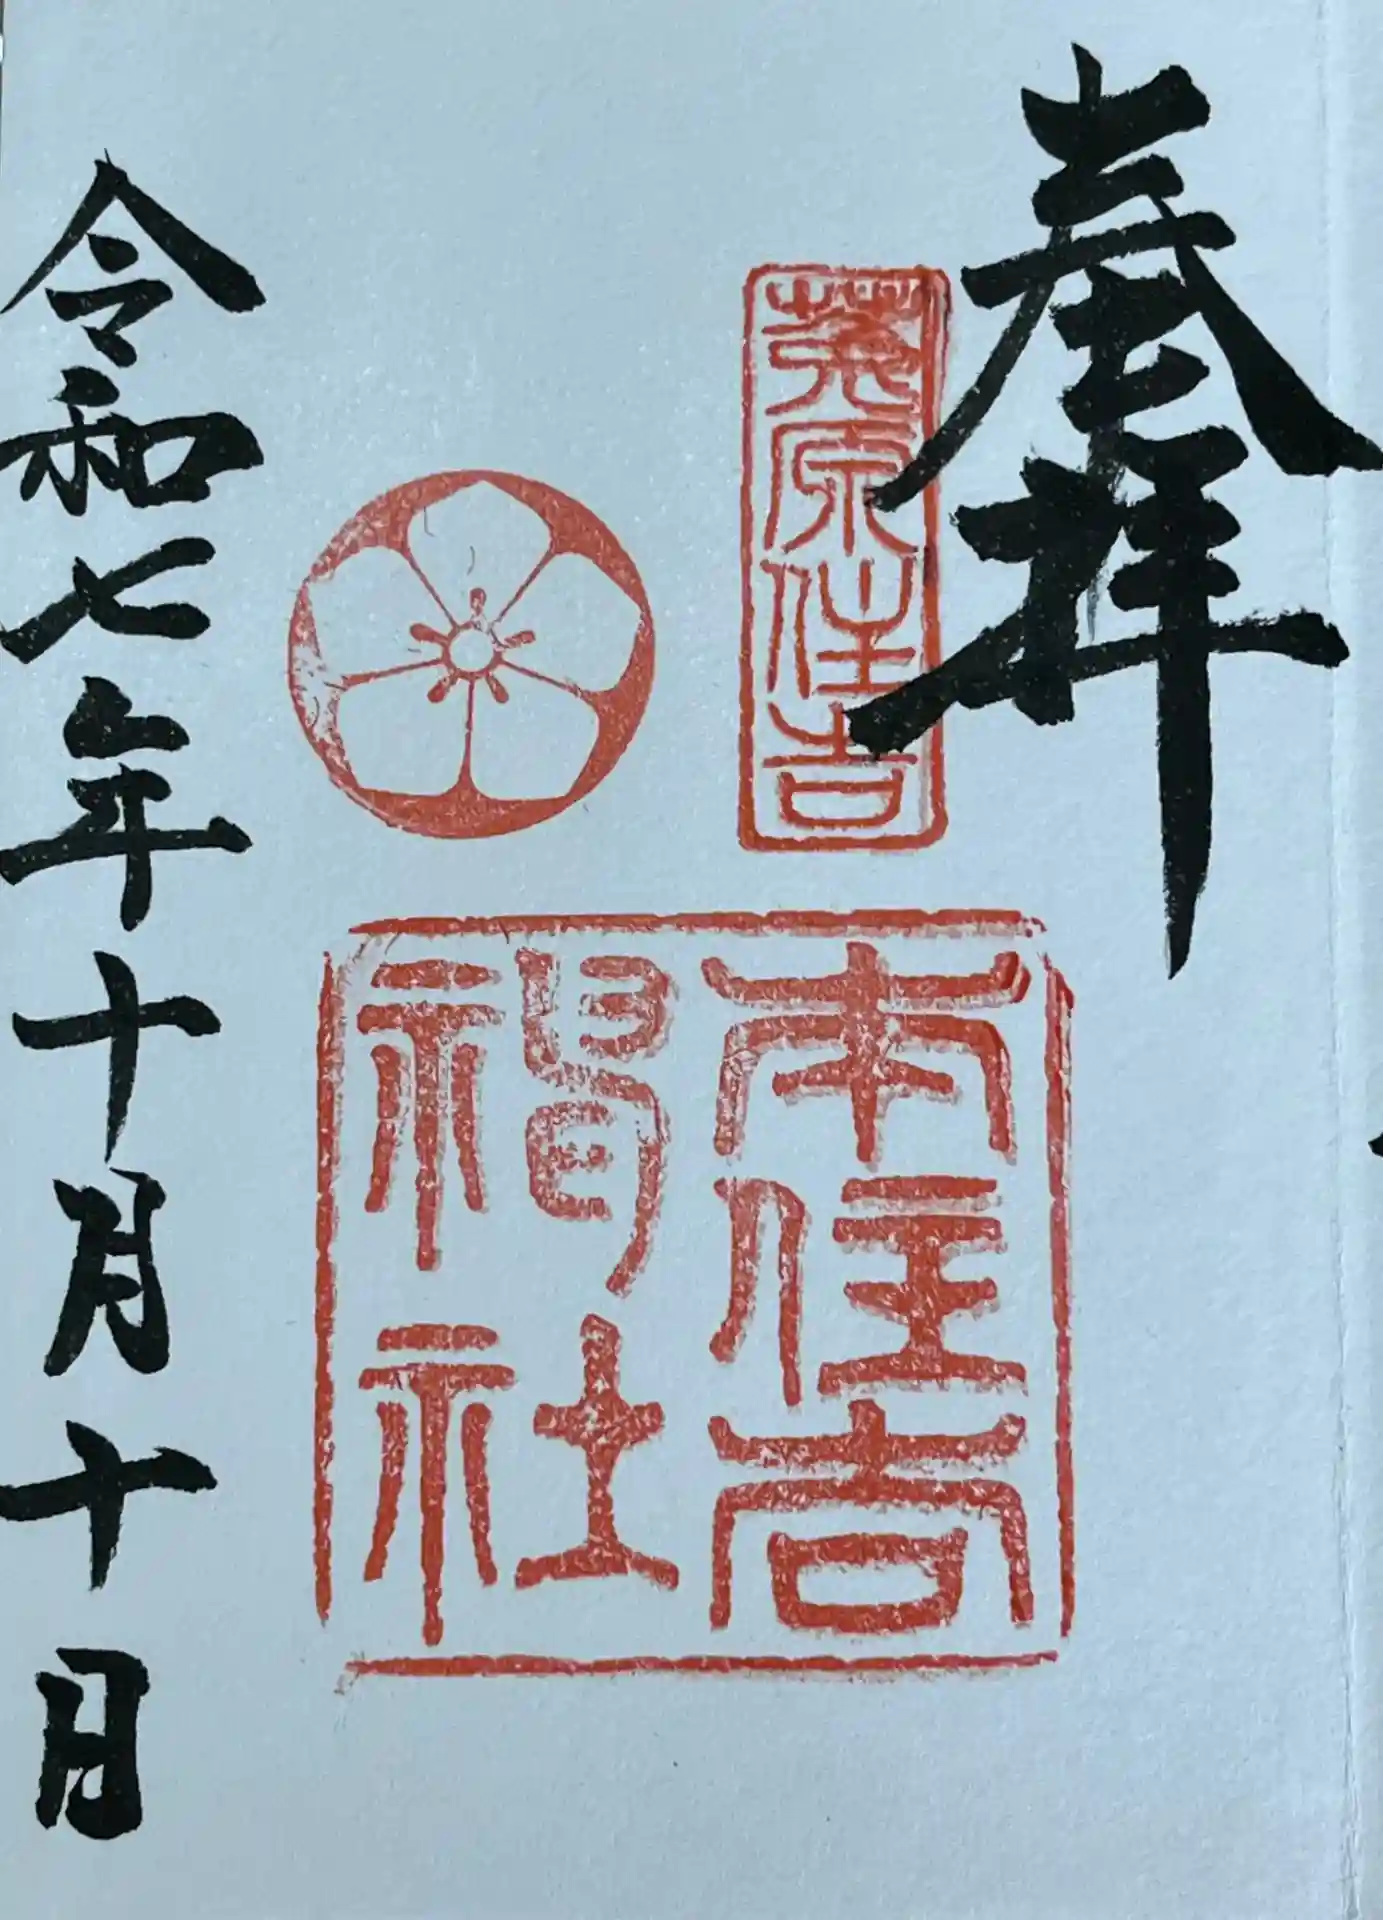 奉拝
菟原住吉
本住吉
神社
令和七年十月十日